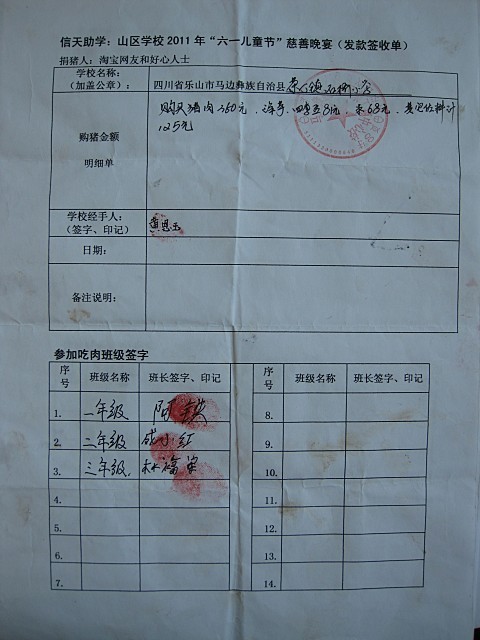 信天助学：山区学校 2011 年“六一儿童节”慈善晚宴（发款签收单）
捐猪人：淘宝网友和好心人士
学校名称：
（加盖公章）： 四川省乐山市马边彝族自治县
购买猪肉 260元、海带、 8元、 米 68元、 佐料计
125元
购猪金额
明细单
学校经手人：
（签字、印记）
日期：
备注说明：
参加吃肉班级签字
序号 班级名称 班长签字、印记 序号 班级名称 班长签字、印记
1. 一年级 阿 8.
2. 二年级 小红 9.
3. 三年级 林 10.
4. 11.
5. 12.
6. 13.
7. 14.